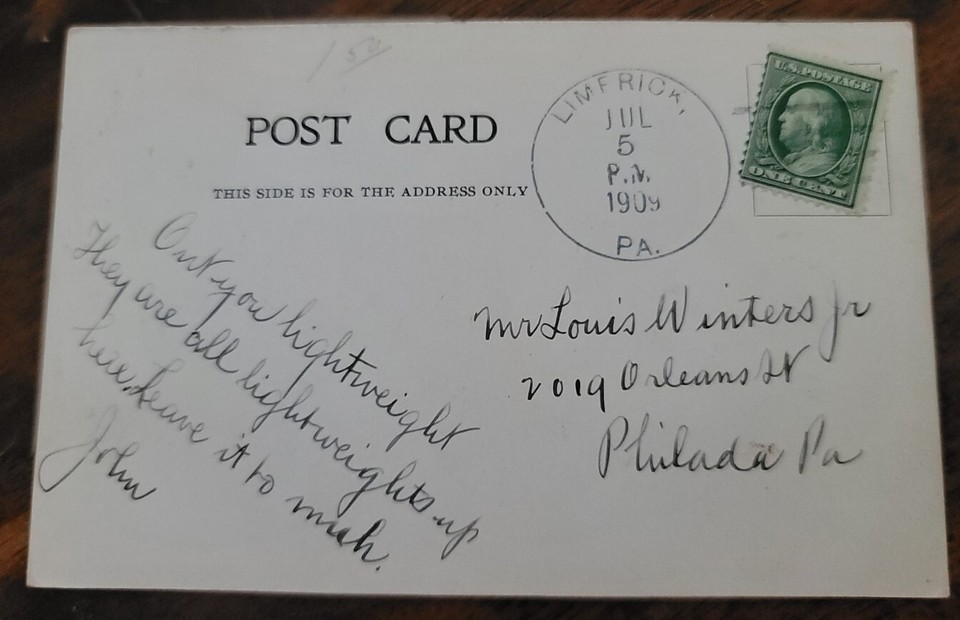 1 50
POST CARD
THIS SIDE IS FOR THE ADDRESS ONLY
LIMERICK,
JUL
5
P.M.
1909
PA.
U.S. POSTAGE
ONE CENT
you lightweight
They are all lightweights up
here. Leave it to
John
Mr Louis Winters Jr
2019 Orleans St
Philada Pa